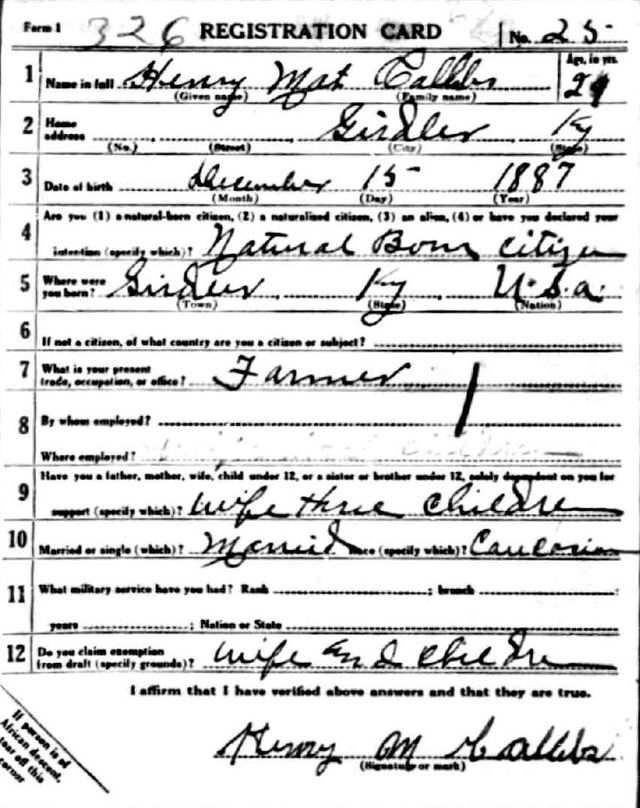 Form 1 326 REGISTRATION CARD No. 25
1 Name in full Henry Mat Callebs Age, in yrs. 29
(Given name) (Family name)
2 Home address Girdler Ky
(No.) (Street) (City) (State)
3 Date of birth December 15 1887
(Month) (Day) (Year)
4 Are you (1) a natural-born citizen, (2) a naturalized citizen, (3) an alien, (4) or have you declared your
intention (specify which)? Natural Born citizen
5 Where were you born? Girdler Ky U.S.a.
(Town) (State) (Nation)
6 If not a citizen, of what country are you a citizen or subject?
7 What is your present trade, occupation, or office? Farmer
8 By whom employed?
Where employed?
9 Have you a father, mother, wife, child under 12, or a sister or brother under 12, solely dependent on you for
support (specify which)? wife three children
10 Married or single (which)? Married Race (specify which)? Caucasian
11 What military service have you had? Rank ; branch ;
years ; Nation or State
12 Do you claim exemption from draft (specify grounds)? wife and children
I affirm that I have verified above answers and that they are true.
Henry M Callebs
(Signature or mark)
If person is of
African descent,
tear off this
corner